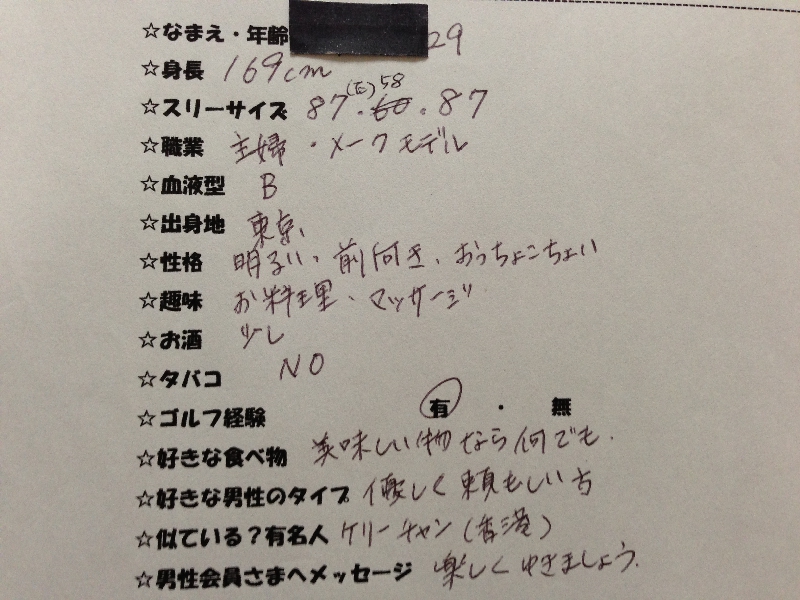 ☆なまえ・年齢 29
☆身長 169cm
☆スリーサイズ 87.60.87
(正)58
☆職業 主婦・メークモデル
☆血液型 B
☆出身地 東京、
☆性格 明るい、前向き、おっちょこちょい
☆趣味 お料理、マッサージ
☆お酒 少し
☆タバコ NO
☆ゴルフ経験 有・無
☆好きな食べ物 美味しい物なら何でも.
☆好きな男性のタイプ 優しく頼もしい方
☆似ている?有名人 ケリーチャン(香港)
☆男性会員さまへメッセージ 楽しくゆきましょう.